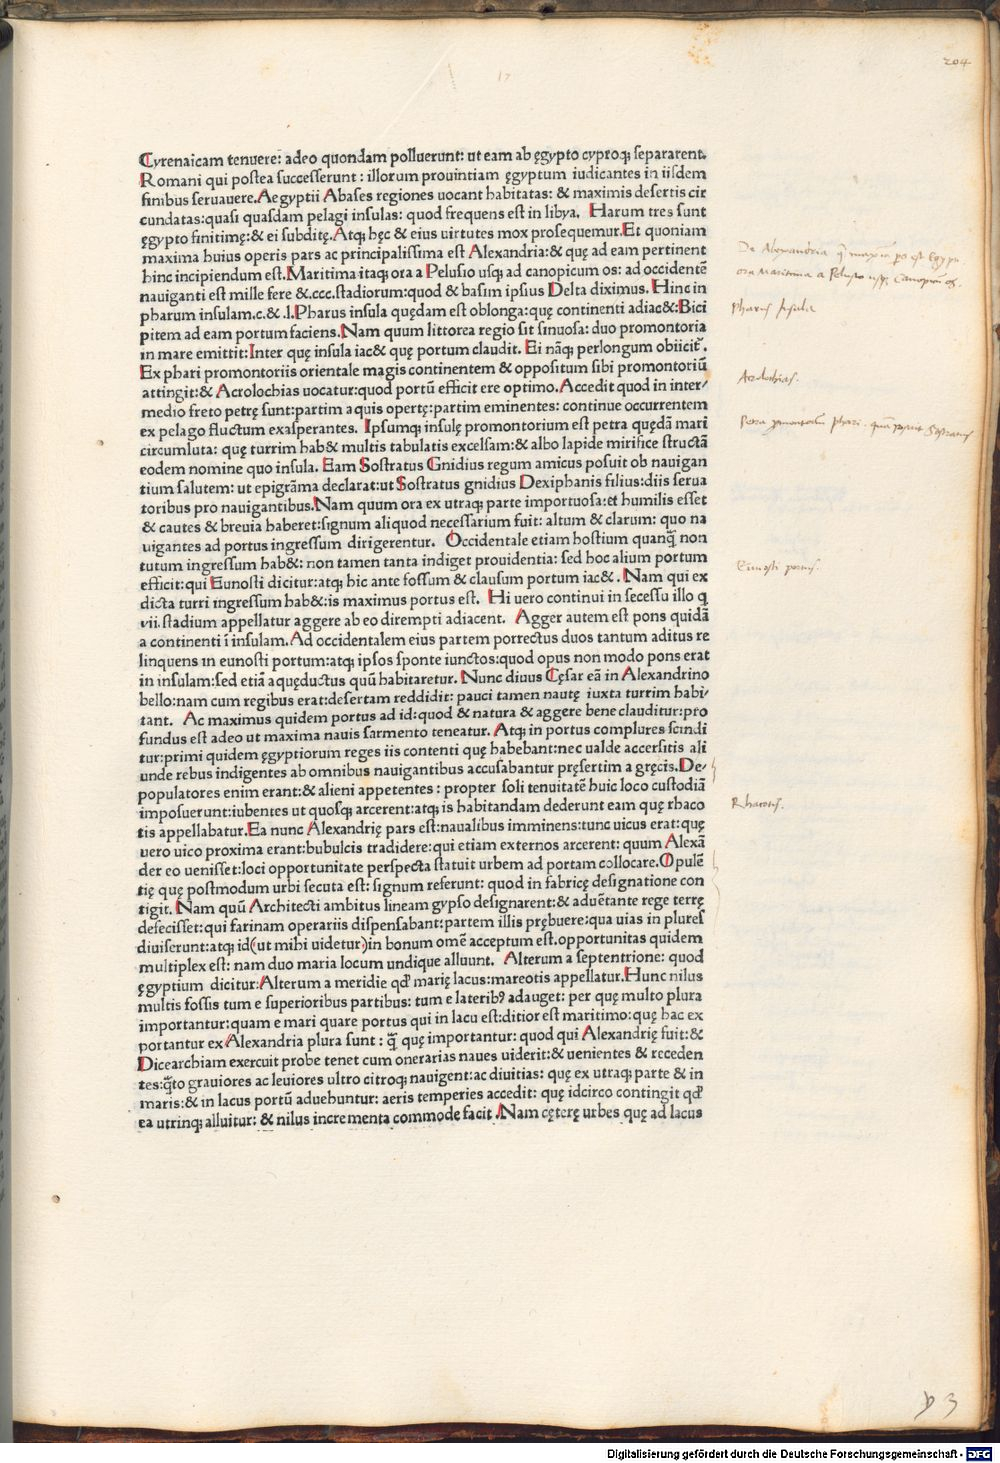 204
17
Cyrenaicam tenuere: adeo quondam polluerunt: ut eam ab ęgypto cyproq; separarent.
Romani qui postea successerunt: illorum prouintiam ęgyptum iudicantes in iisdem
finibus seruauere. Aegyptii Abases regiones uocant habitatas: & maximis desertis cir
cundatas: quasi quasdam pelagi insulas: quod frequens est in libya. Harum tres sunt
ęgypto finitimę: & ei subditę. Atq; hęc & eius uirtutes mox prosequemur. Et quoniam
maxima huius operis pars ac principalissima est Alexandria: & quę ad eam pertinent
hinc incipiendum est. Maritima itaq; ora a Pelusio usq; ad canopicum os: ad occidentē
nauiganti est mille fere & .ccc. stadiorum: quod & basim ipsius Delta diximus. Hinc in
pharum insulam .c. & .l. Pharus insula quędam est oblonga: quę continenti adiac&: Bici
pitem ad eam portum faciens. Nam quum littorea regio sit sinuosa: duo promontoria
in mare emittit: Inter quę insula iac& quę portum claudit. Ei nāq; perlongum obiicit̄.
Ex phari promontoriis orientale magis continentem & oppositum sibi promontoriū
attingit: & Acrolochias uocatur: quod portū efficit ere optimo. Accedit quod in inter/
medio freto petrę sunt: partim aquis opertę: partim eminentes: continue occurrentem
ex pelago fluctum exasperantes. Ipsumq; insulę promontorium est petra quędā mari
circumluta: quę turrim hab& multis tabulatis excelsam: & albo lapide mirifice structā
eodem nomine quo insula. Eam Sostratus Gnidius regum amicus posuit ob nauigan
tium salutem: ut epigrāma declarat: ut Sostratus gnidius Dexiphanis filius: diis serua
toribus pro nauigantibus. Nam quum ora ex utraq; parte importuosa: et humilis esset
& cautes & breuia haberet: signum aliquod necessarium fuit: altum & clarum: quo na
uigantes ad portus ingressum dirigerentur. Occidentale etiam hostium quanq̄ non
tutum ingressum hab&: non tamen tanta indiget prouidentia: sed hoc alium portum
efficit: qui Eunosti dicitur: atq; hic ante fossum & clausum portum iac&. Nam qui ex
dicta turri ingressum hab&: is maximus portus est. Hi uero continui in secessu illo q
vii. stadium appellatur aggere ab eo dirempti adiacent. Agger autem est pons quidā
a continenti ī insulam. Ad occidentalem eius partem porrectus duos tantum aditus re
linquens in eunosti portum: atq; ipsos sponte iunctos: quod opus non modo pons erat
in insulam: sed etiā aquęductus quū habitaretur. Nunc diuus Cęsar eā in Alexandrino
bello: nam cum regibus erat: desertam reddidit: pauci tamen nautę iuxta turrim habi/
tant. Ac maximus quidem portus ad id: quod & natura & aggere bene clauditur: pro
fundus est adeo ut maxima nauis sarmento teneatur. Atq; in portus complures scindi
tur: primi quidem ęgyptiorum reges iis contenti quę habebant: nec ualde accersitis ali
unde rebus indigentes ab omnibus nauigantibus accusabantur pręsertim a gręcis. De/
populatores enim erant: & alieni appetentes: propter soli tenuitatē huic loco custodiā
imposuerunt: iubentes ut quosq; arcerent: atq; is habitandam dederunt eam quę rhaco
tis appellabatur. Ea nunc Alexandrię pars est: naualibus imminens: tunc uicus erat: quę
uero uico proxima erant: bubulcis tradidere: qui etiam externos arcerent: quum Alexā
der eo uenisset: loci opportunitate perspecta statuit urbem ad portam collocare. Opulē
tię quę postmodum urbi secuta est: signum referunt: quod in fabricę designatione con
tigit. Nam quū Architecti ambitus lineam gypso designarent: & aduētante rege terrę
defecisset: qui farinam operariis dispensabant: partem illis prębuere: qua uias in plures
diuiserunt: atq; id (ut mihi uidetur) in bonum omē acceptum est. opportunitas quidem
multiplex est: nam duo maria locum undique alluunt. Alterum a septentrione: quod
ęgyptium dicitur: Alterum a meridie qđ marię lacus: mareotis appellatur. Hunc nilus
multis fossis tum e superioribus partibus: tum e lateribꝰ adauget: per quę multo plura
importantur: quam e mari quare portus qui in lacu est: ditior est maritimo: quę hac ex
portantur ex Alexandria plura sunt: q̄ quę importantur: quod qui Alexandrię fuit: &
Dicearchiam exercuit probe tenet cum onerarias naues uiderit: & uenientes & receden
tes: q̄to grauiores ac leuiores ultro citroq; nauigent: ac diuitias: quę ex utraq; parte & in
maris: & in lacus portū aduehuntur: aeris temperies accedit: quę idcirco contingit qđ
ea utrinq; alluitur: & nilus incrementa commode facit. Nam cęterę urbes quę ad lacus
De Alexandria
ora Maritima a Pelusio usq; Canopicum os.
Pharus Insula
Acrolochias.
Petra promontorium Phari. quam posuit Sostratus
Eunosti portus.
Rhacotis.
y 3
Digitalisierung gefördert durch die Deutsche Forschungsgemeinschaft - DFG